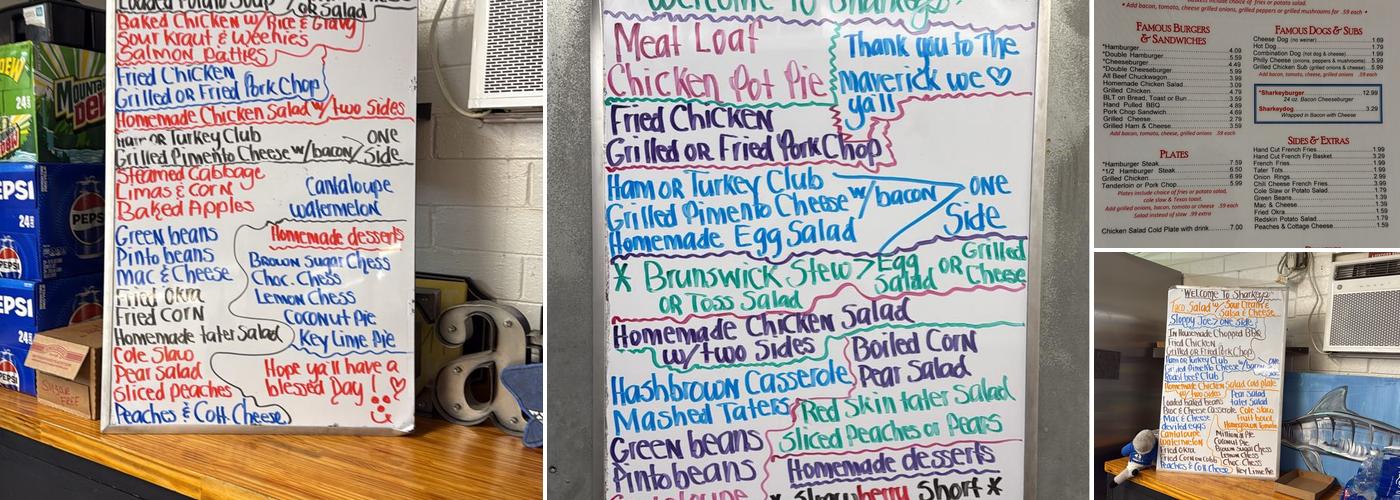 Loaded Potato Soup or Salad
Baked Chicken w/ Rice & Gravy
Sour Kraut & Weenies
Salmon Patties
Fried Chicken
Grilled or Fried Pork Chop
Homemade Chicken Salad w/ two Sides
Ham or Turkey Club
Grilled Pimento Cheese w/bacon
one Side
Steamed Cabbage
Limas & Corn
Baked Apples
Green beans
Pinto beans
Mac & Cheese
Fried Okra
Fried Corn
Homemade tater Salad
Cole Slaw
Pear Salad
Sliced peaches
Peaches & Cott Cheese
Cantaloupe
watermelon
Homemade desserts
Brown Sugar Chess
Choc. Chess
Lemon Chess
Coconut Pie
Key Lime Pie
Hope ya'll have a
blessed Day!
DEW
MOUNTAIN
DEW
24
PEPSI
PEPSI
24
PEPSI
24
SUGAR
FREE
a
Welcome to Sharkeys
Meat Loaf
Chicken Pot Pie
Thank you to The
Maverick we ♡
ya'll
Fried Chicken
Grilled or Fried Pork Chop
Ham or Turkey Club
Grilled Pimento Cheese w/bacon
Homemade Egg Salad
one
Side
* Brunswick Stew > Egg Salad or Grilled Cheese
or Toss Salad
Homemade Chicken Salad
w/two Sides
Boiled Corn
Pear Salad
Hashbrown Casserole
Mashed Taters
Red Skin tater Salad
Sliced Peaches or Pears
Green beans
Pinto beans
Homemade desserts
* Strawberry Short *
baskets include choice of fries or potato salad.
• Add bacon, tomato, cheese grilled onions, grilled peppers or grilled mushrooms for .59 each •
FAMOUS BURGERS
& SANDWICHES
*Hamburger 4.09
*Double Hamburger 5.59
*Cheeseburger 4.49
*Double Cheeseburger 5.99
All Beef Chuckwagon 3.99
Homemade Chicken Salad 3.09
Grilled Chicken 4.79
BLT on Bread, Toast or Bun 3.59
Hand Pulled BBQ 4.89
Pork Chop Sandwich 4.69
Grilled Cheese 2.79
Grilled Ham & Cheese 3.59
Add bacon, tomato, cheese, grilled onions .59 each
PLATES
*Hamburger Steak 7.59
*1/2 Hamburger Steak 6.50
Grilled Chicken 6.99
Tenderloin or Pork Chop 5.99
Plates include choice of fries or potato salad,
cole slaw & Texas toast.
Add grilled onions, bacon, tomato or cheese .59 each
Salad instead of slaw .99 extra
Chicken Salad Cold Plate with drink 7.00
FAMOUS DOGS & SUBS
Cheese Dog (no weiner) 1.69
Hot Dog 1.79
Combination Dog (hot dog & cheese) 1.99
Philly Cheese (onions, peppers & mushrooms) 5.99
Grilled Chicken Sub (grilled onions & cheese) 5.99
Add bacon, tomato, cheese, grilled onions .59 each
*Sharkeyburger 12.99
24 oz. Bacon Cheeseburger
Sharkeydog 3.29
Wrapped in Bacon with Cheese
SIDES & EXTRAS
Hand Cut French Fries 1.99
Hand Cut French Fry Basket 3.29
French Fries 1.99
Tater Tots 1.99
Onion Rings 2.99
Chili Cheese French Fries 3.99
Cole Slaw or Potato Salad 1.79
Green Beans 1.39
Mac & Cheese 1.39
Fried Okra 1.59
Redskin Potato Salad 1.79
Peaches & Cottage Cheese 1.59
Welcome To Sharkeys
Taco Salad w/ Sour Cream &
Salsa & Cheese
Sloppy Joe > one side
In Housemade Chopped BBQ
Fried Chicken
Grilled or Fried Pork Chop
Ham or Turkey Club
Grilled Pimento Cheese w/bacon
Roast beef Club
one
Side
Homemade Chicken Salad Cold plate
w/ two sides
Pear Salad
Loaded baked Beans
tater Salad
Broc & Cheese Casserole
Cole Slaw
Mac & Cheese
Fruit bowl
deviled eggs
Homegrown tomatoes
Cantaloupe
Million $ Pie
watermelon
Coconut Pie
Fried Okra
Brown Sugar Chess
Lemon Chess
Fried Corn on Cobb
Choc. Chess
Peaches & Cott Cheese
Key Lime Pie